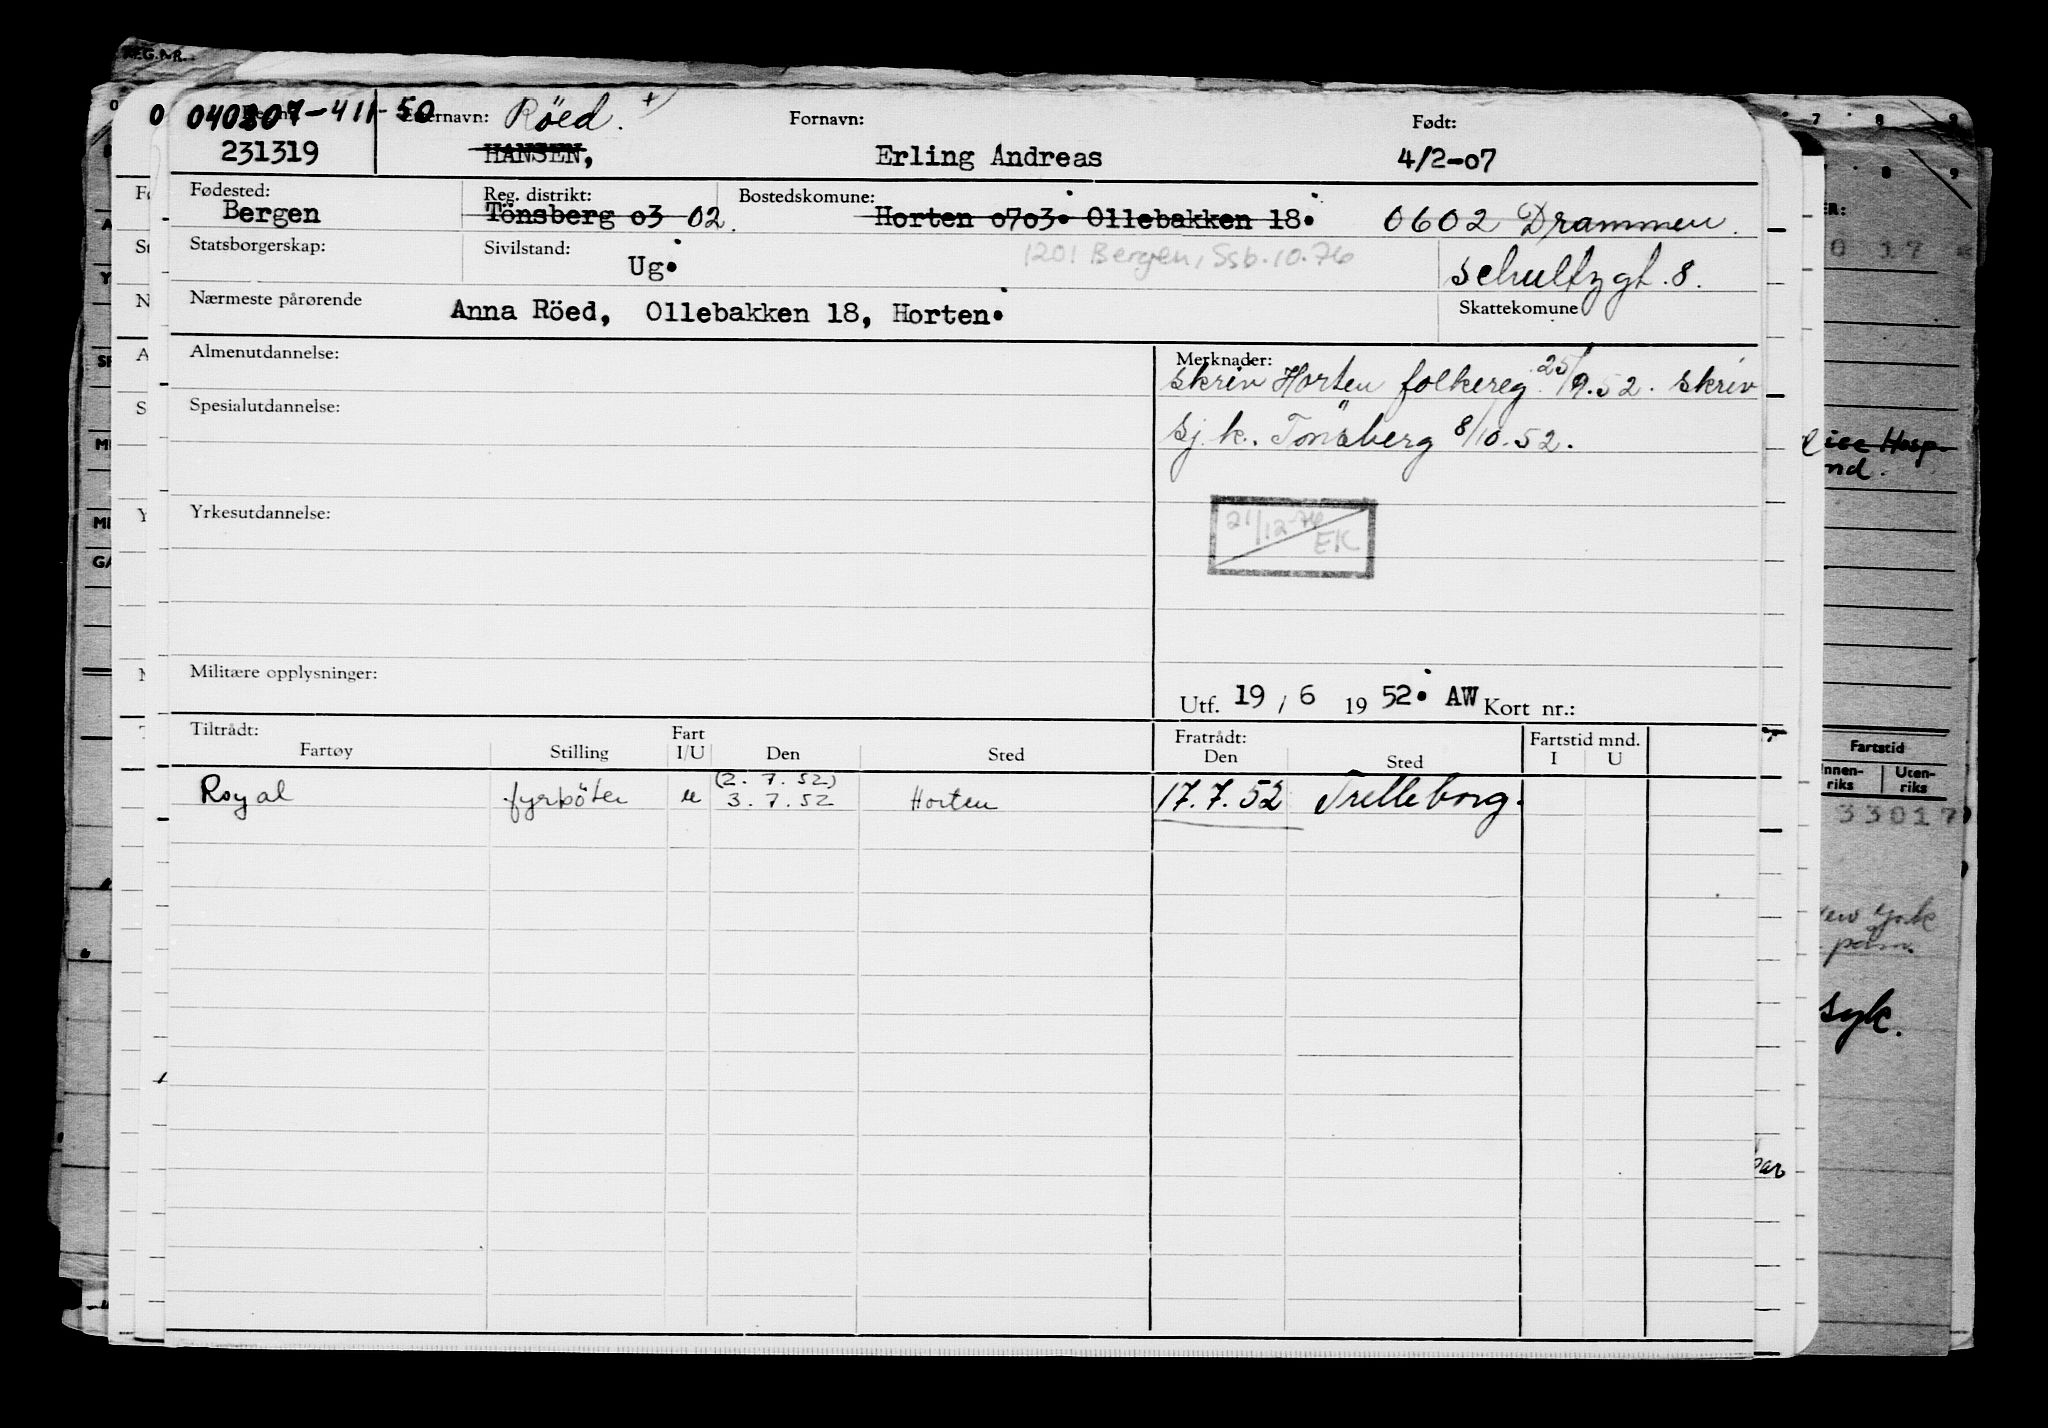 REG.NR.
040207-411-50 Etternavn: Röed. + Fornavn: Født:
231319 HANSEN, Erling Andreas 4/2-07
Fødested: Reg. distrikt: Bostedskomune:
Bergen Tönsberg o3 02. Horten o7o3. Ollebakken 18. 0602 Drammen.
Statsborgerskap: Sivilstand: Ug. 1201 Bergen, Ssb. 10.76 Schultzgt. 8.
Nærmeste pårørende Anna Röed, Ollebakken 18, Horten. Skattekomune
Almenutdannelse: Merknader:
Skriv Horten folkereg. 25/9.52. Skriv
Spesialutdannelse:
Sj.k. Tönsberg 8/10.52.
Yrkesutdannelse:
21/12-76 EK
Militære opplysninger:
Utf. 19 / 6 19 52. AW Kort nr.:
Tiltrådt: Fart Fratrådt: Fartstid mnd.
Fartøy Stilling I/U Den Sted Den Sted I U
(2.7.52)
Royal fyrböter u 3.7.52 Horten 17.7.52 Trelleborg.
7 8 9
8 9
0 17
Hosp.
nd.
Fartstid
Innen-riks Uten-riks
33017
New York
syk.